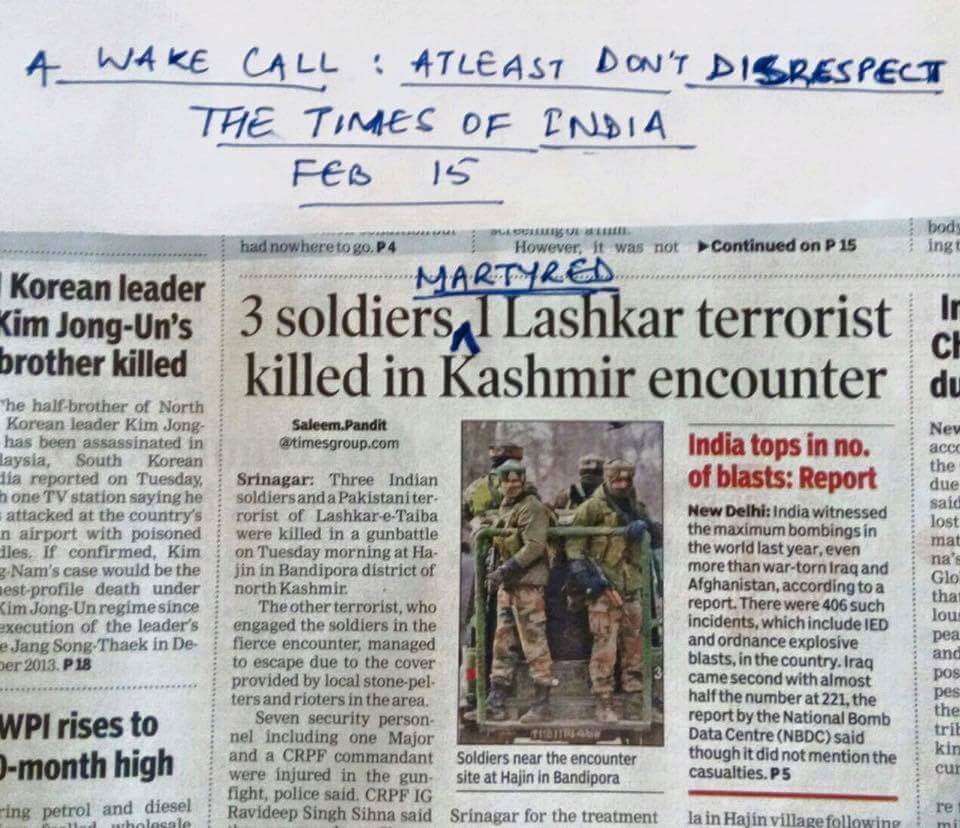 A WAKE CALL : ATLEAST DON'T DISRESPECT
THE TIMES OF INDIA
FEB 15
had nowhere to go. P4
However, it was not
▶Continued on P 15
body
MARTYRED
3 soldiers, 1 Lashkar terrorist
killed in Kashmir encounter
Saleem.Pandit
@timesgroup.com
Srinagar: Three Indian
soldiers and a Pakistani ter-
rorist of Lashkar-e-Taiba
were killed in a gunbattle
on Tuesday morning at Ha-
jin in Bandipora district of
north Kashmir.
The other terrorist, who
engaged the soldiers in the
fierce encounter, managed
to escape due to the cover
provided by local stone-pel-
ters and rioters in the area.
Seven security person-
nel including one Major
and a CRPF commandant
were injured in the gun-
fight, police said. CRPF IG
Ravideep Singh Sihna said
Soldiers near the encounter
site at Hajin in Bandipora
Srinagar for the treatment
India tops in no.
of blasts: Report
New Delhi: India witnessed
the maximum bombings in
the world last year, even
more than war-torn Iraq and
Afghanistan, according to a
report. There were 406 such
incidents, which include IED
and ordnance explosive
blasts, in the country. Iraq
came second with almost
half the number at 221, the
report by the National Bomb
Data Centre (NBDC) said
though it did not mention the
casualties. P5
la in Hajin village following
Korean leader
Kim Jong-Un's
brother killed
The half-brother of North
Korean leader Kim Jong-
has been assassinated in
laysia, South Korean
dia reported on Tuesday,
h one TV station saying he
attacked at the country's
n airport with poisoned
dles. If confirmed, Kim
g-Nam's case would be the
hest-profile death under
Kim Jong-Un regime since
execution of the leader's
e Jang Song-Thaek in De-
ber 2013. P18
WPI rises to
0-month high
ring petrol and diesel
wholesale